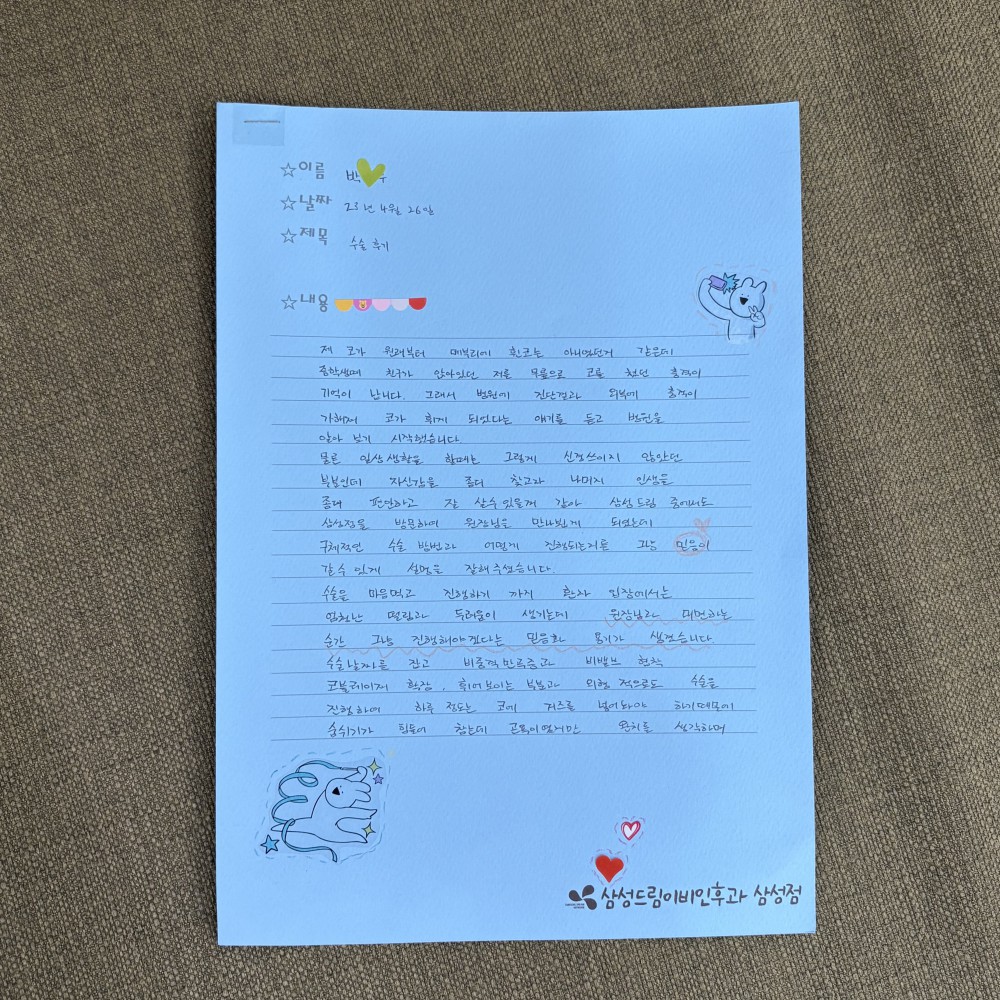 ☆이름 박
☆날짜 23년 4월 26일
☆제목 수술 후기
☆내용
제 코가 원래부터 매부리에 휜코는 아니였던거 같은데
중학생때 친구가 앉아있던 저를 무릎으로 코를 쳤던 충격이
기억이 납니다. 그래서 병원에 진단결과 외부에 충격이
가해져 코가 휘게 되었다는 얘기를 듣고 병원을
알아 보기 시작했습니다
물론 일상생활을 할때는 그렇게 신경쓰이지 않았던
부분인데 자신감을 좀더 찾고자 나머지 인생을
좀더 편안하고 잘 살수있을꺼 같아 삼성드림 중에서도
삼성점을 방문하여 원장님을 만나뵙게 되었는데
구체적인 수술 방법과 어떻게 진행되는거를 그냥 믿음이
갈수 있게 설명을 잘해주셨습니다.
수술을 마음먹고 진행하기 까지 환자 입장에서는
엄청난 떨림과 두려움이 생기는데 원장님과 대면하는
순간 그냥 진행해야겠다는 믿음화 용기가 생겼습니다
수술날짜를 잡고 비중격만곡증과 비밸브 협착
코블레이져 확장, 휘어보이는 부분과 외형 적으로도 수술을
진행하여 하루 정도는 코에 거즈를 넣어놔야 하기때문에
숨쉬기가 힘들어 참는데 곤욕이였지만 완치를 생각하며
삼성드림이비인후과 삼성점